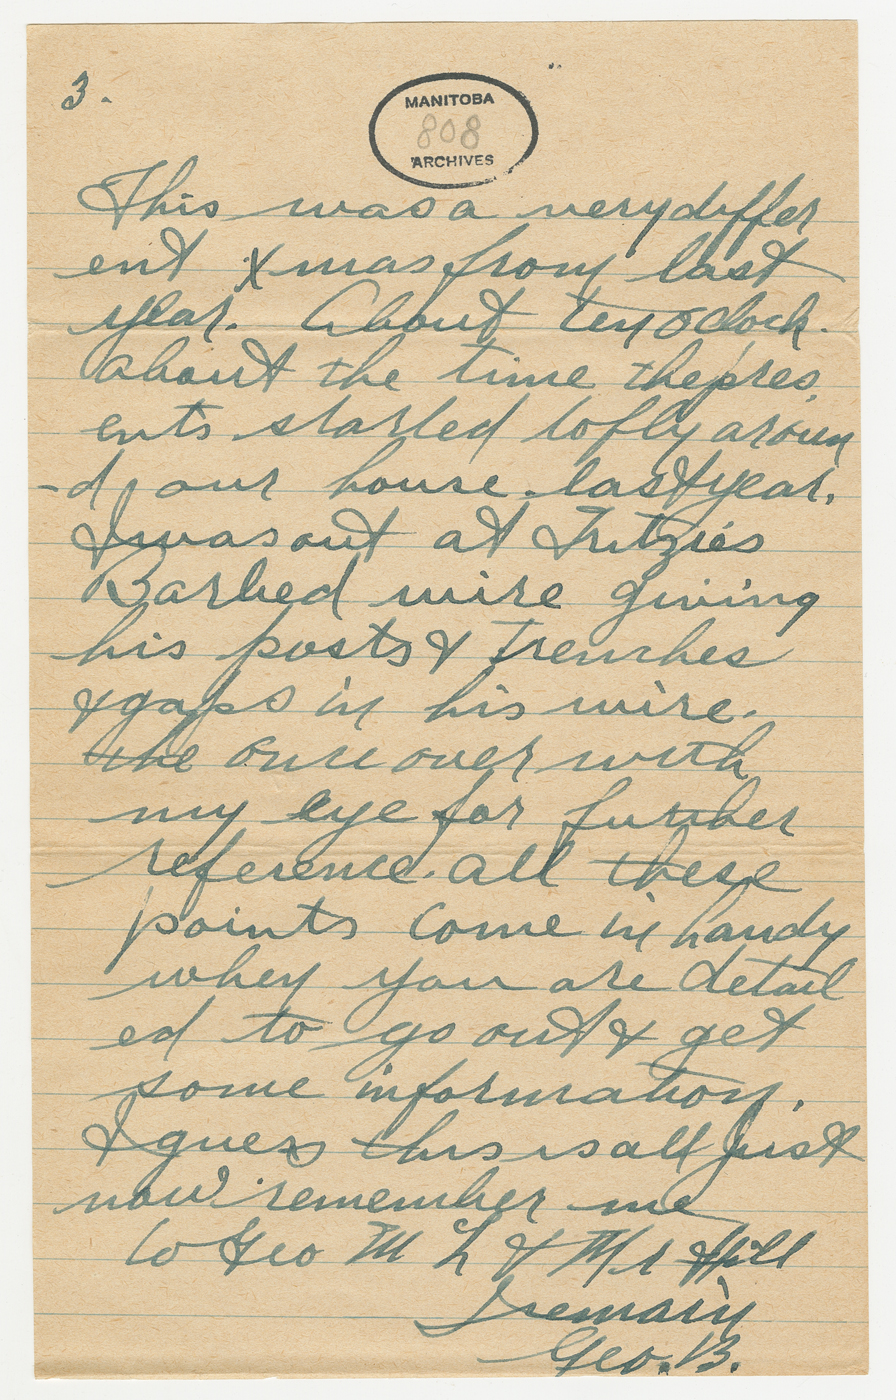 3.
MANITOBA
808
ARCHIVES
This was a very differ
ent Xmas from last
year. About ten oclock.
About the time the pres
ents started to fly aroun
-d our house. last year.
I was out at Fritzies
Barbed wire giving
his posts & Trenches
& gaps in his wire.
the once over with
my eye for further
reference. all these
points come in handy
when you are detail
ed to go out & get
some information.
I guess this is all Just
now remember me
to Geo Mc L & Mr Hill
I remain
Geo. B.